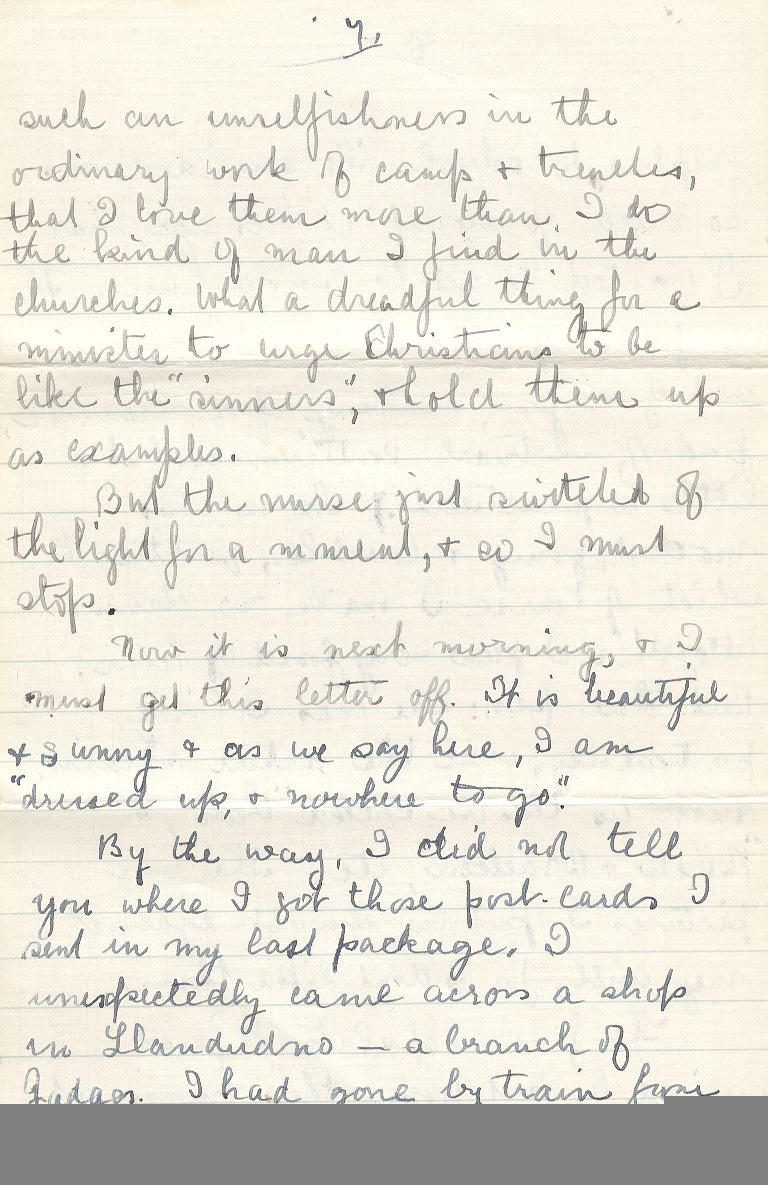 7.
such an unselfishness in the
ordinary work of camp & trenches,
that I love them more than I do
the kind of man I find in the
churches. What a dreadful thing for a
minister to urge Christians to be
like the "sinners", & hold them up
as examples.
But the nurse just switched of
the light for a moment, & so I must
stop.
Now it is next morning, & I
must get this letter off. It is beautiful
& sunny & as we say here, I am
"dressed up, & nowhere to go".
By the way, I did not tell
you where I got those post-cards I
sent in my last package. I
unexpectedly came across a shop
in Llandudno — a branch of
Judges. I had gone by train from